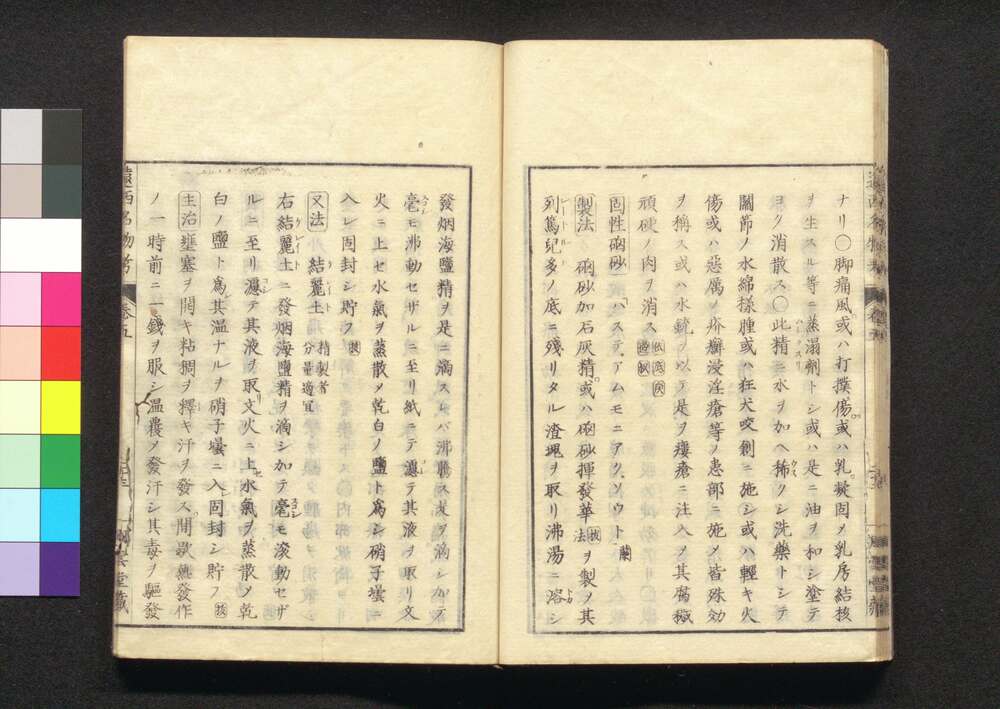 ナリ〇脚痛風或ハ打撲傷或ハ乳凝固メ乳房結核
ヲ生スル等ニ蒸溻劑トシ或ハ是ニ油ヲ和シ塗テ
ヨク消散ス〇此精ニ水ヲ加ヘ稀クシ洗藥トシテ
關節ノ水綿様腫或ハ狂犬咬創ニ施シ或ハ輕キ火
傷或ハ惡厲ノ疥癬浸淫瘡等ノ患部ニ施メ皆殊効
ヲ稱ス或ハ水銃ヲ以テ是ヲ瘻瘡ニ注入メ其腐穢
頑硬ノ肉ヲ消ス
固性硇砂 「ハステ、アムモニアク、ソウト 蘭
製法 硇砂加石灰精或ハ硇砂揮發華法ヲ製メ其
列篤兒多ノ底ニ殘リタル渣塊ヲ取リ沸湯ニ溶シ
發烟海鹽精ヲ是ニ滴スレバ沸騰ス友ヲ滴シカテ
毫モ沸動セザルニ至リ紙ニテ濾テ其液ヲ取リ文
火ニ上セ水氣ヲ蒸散メ乾白ノ鹽ト爲シ硝子壜ニ
入レ固封シ貯フ
又法 結麗土 精製者 分量適宜
右結麗土ニ發烟海鹽精ヲ滴シ加テ毫モ滾動セザ
ルニ至リ濾テ其液ヲ取文火ニ上水氣ヲ蒸散メ乾
白ノ鹽ト爲其温ナルヲ硝子壜ニ入固封シ貯フ
主治 壅塞ヲ開キ粘稠ヲ釋キ汗ヲ發ス間歇熱發作
ノ一時前ニ一錢ヲ服シ温覆メ發汗シ其毒ヲ驅發
遠西名物考 卷五